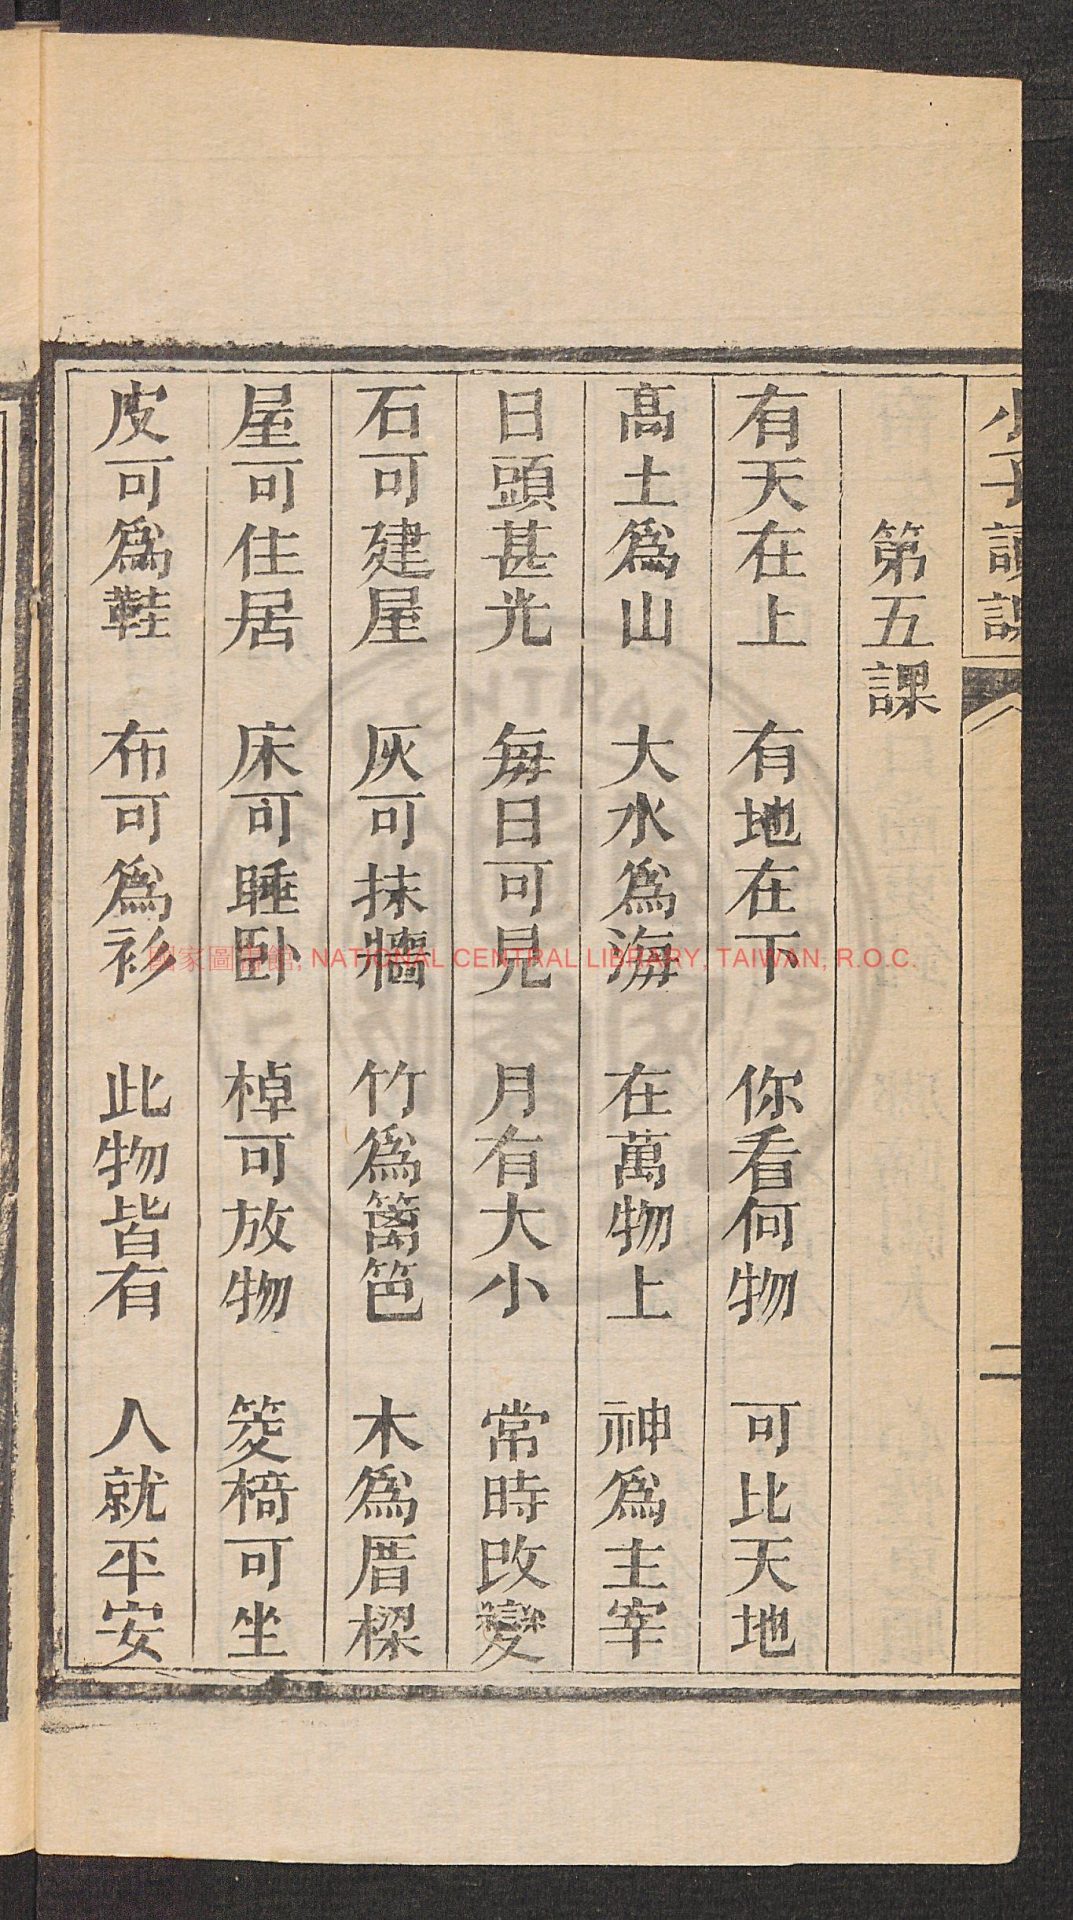 小子讀課
二
第五課
有天在上 有地在下 你看何物 可比天地
高土爲山 大水爲海 在萬物上 神爲主宰
日頭甚光 每日可見 月有大小 常時改變
石可建屋 灰可抹牆 竹爲篱笆 木爲厝樑
屋可住居 床可睡臥 棹可放物 筊椅可坐
皮可爲鞋 布可爲衫 此物皆有 人就平安
國家圖書館, NATIONAL CENTRAL LIBRARY, TAIWAN, R.O.C.